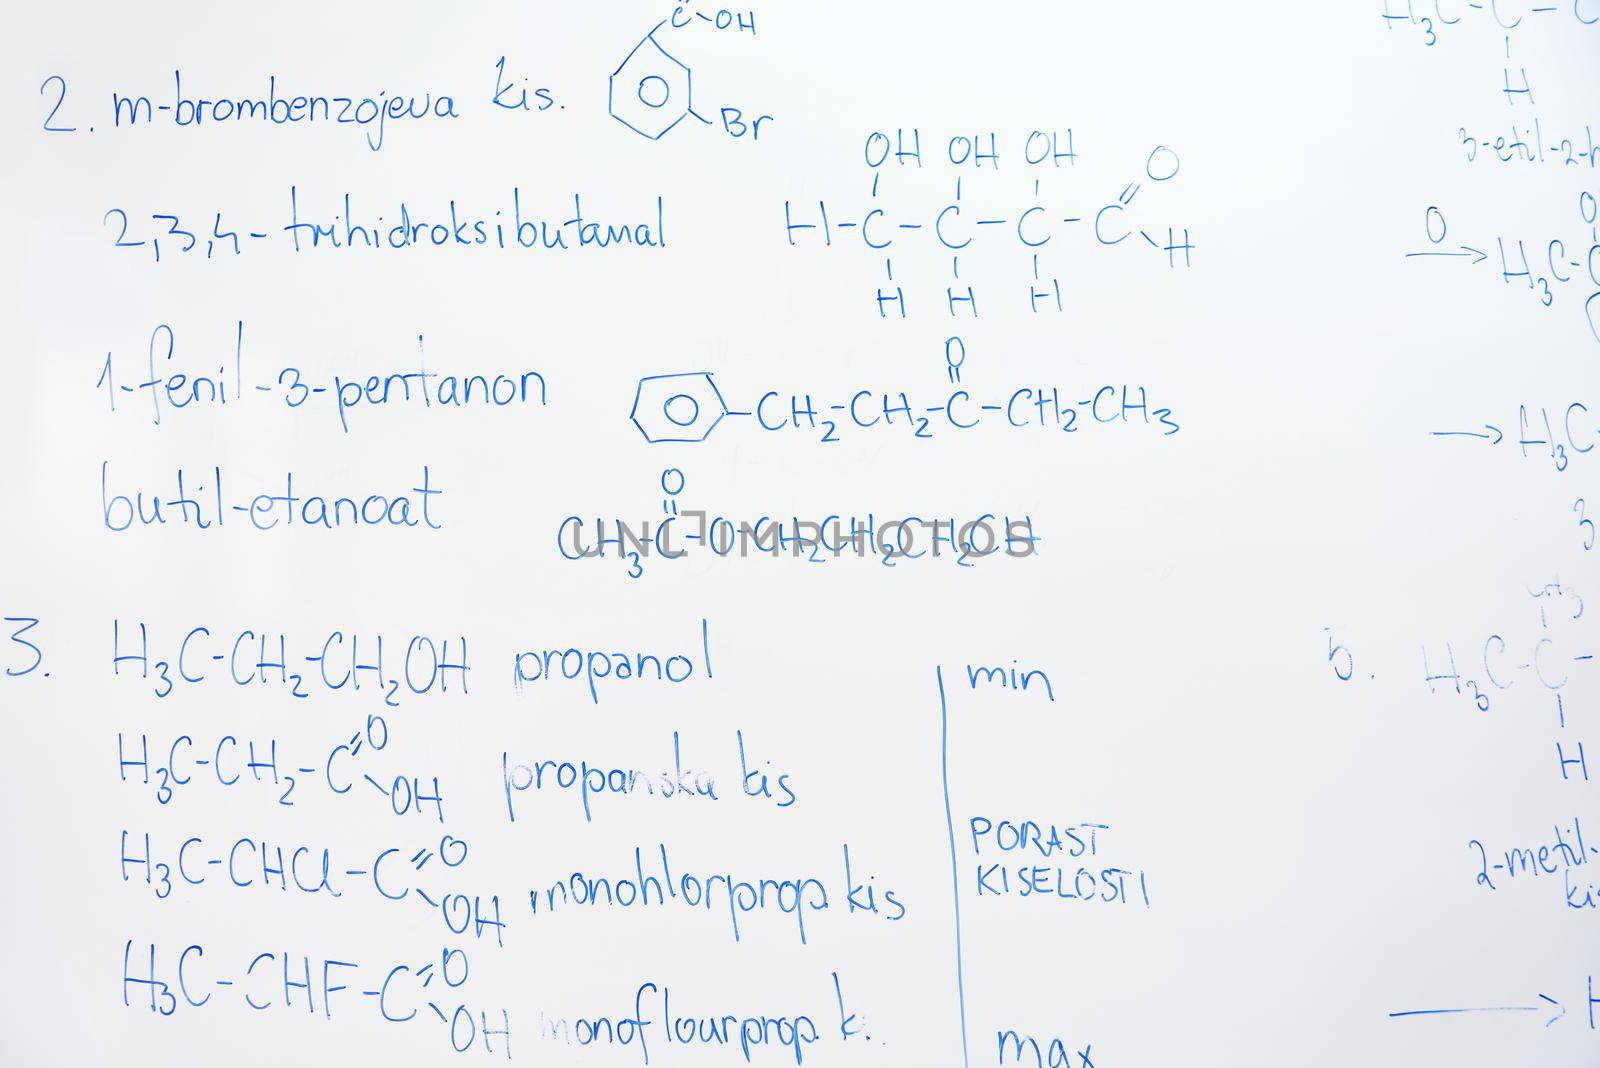 C-OH
2. m-brombenzojeva kis.
Br
2,3,4-trihidroksibutanal
OH OH OH O
H-C-C-C-C
H
H H H
1-fenil-3-pentanon
O
-CH2-CH2-C-CH2-CH3
butil-etanoat
O
CH3-C-O-CH2CH2CH2CH
UNLIMPHOTOS
3. H3C-CH2-CH2OH propanol
min
H3C-CH2-C=O
OH propanska kis
H3C-CHCl-C=O
OH monohlorprop. kis
PORAST
KISELOSTI
H3C-CHF-C=O
OH monoflourprop. k.
max
H3C-C-C
H
3-etil-2-h
O
O
H3C-C
H3C
3
CH3
5. H3C-C-
H
2-metil-
kis
H